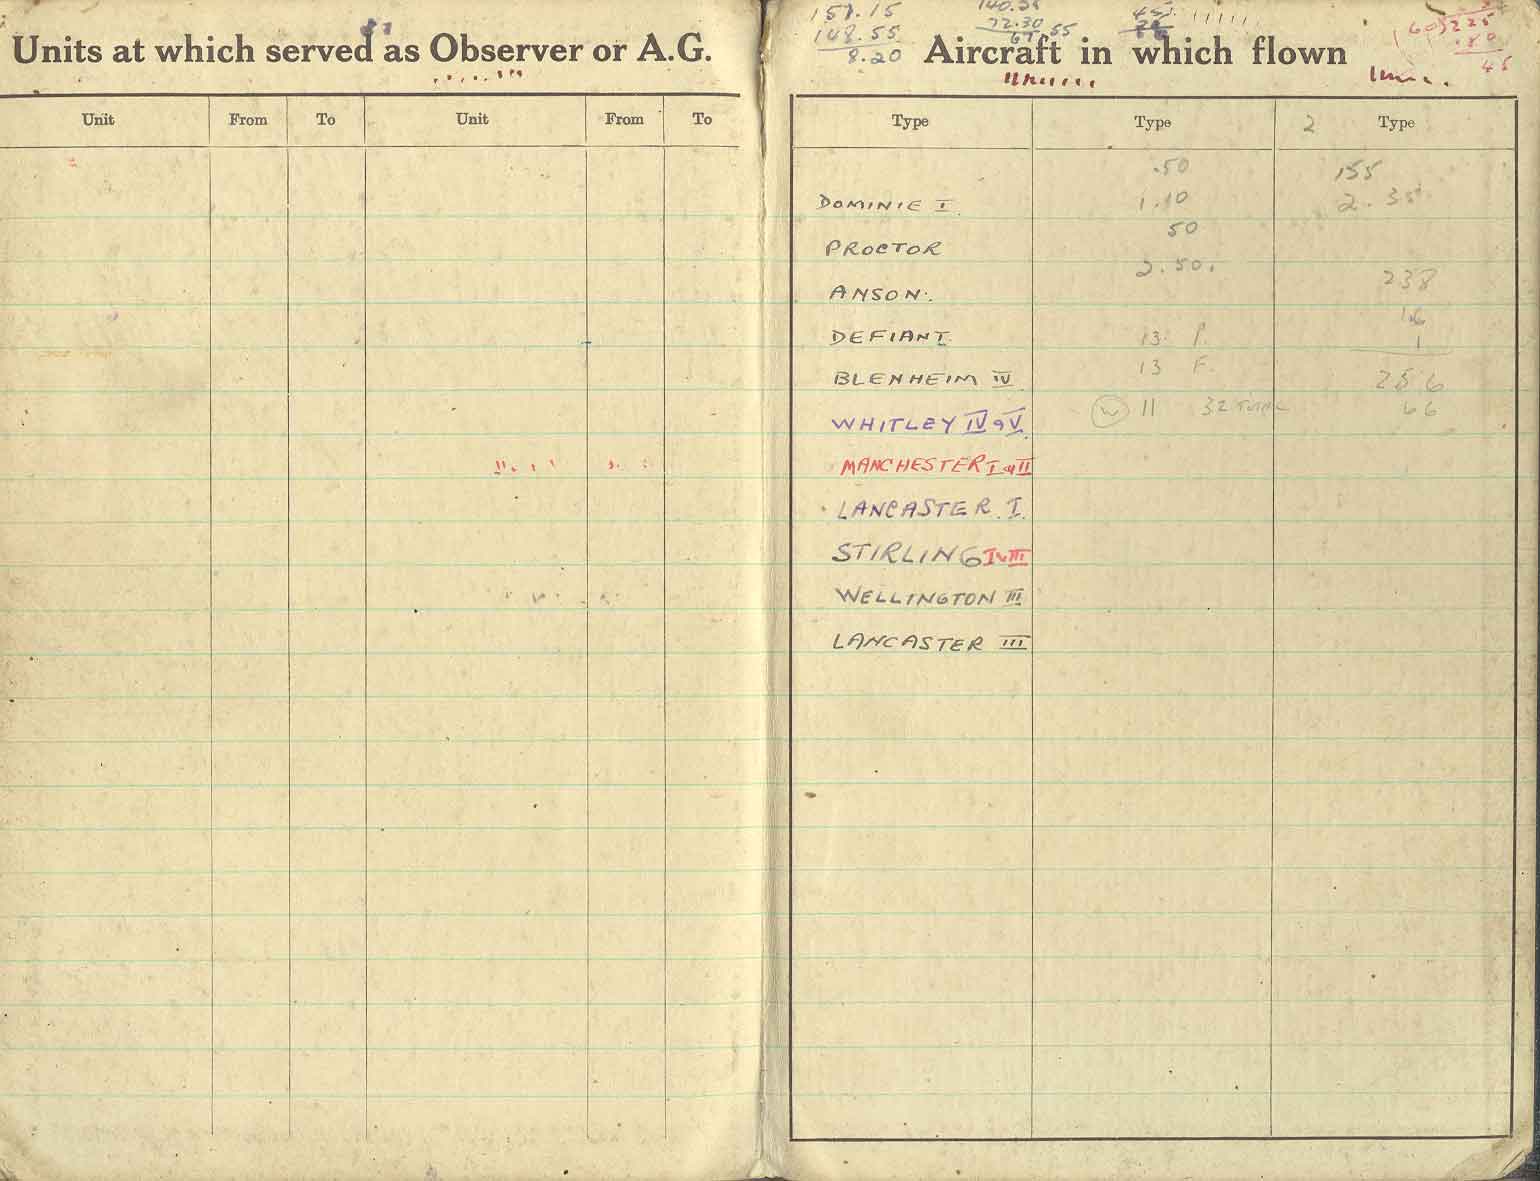 Units at which served as Observer or A.G.
Unit From To Unit From To
151.15
148.55
8.20
Aircraft in which flown
Type Type 2 Type
.50 155
DOMINIE I 1.10 2.35
50
PROCTOR
2.50.
ANSON. 238
16
DEFIANT 13 P. 1
13 F.
BLENHEIM IV 256
WHITLEY IV & V W 11 32 TOTAL 66
MANCHESTER I & II
LANCASTER I
STIRLING I & III
WELLINGTON III
LANCASTER III